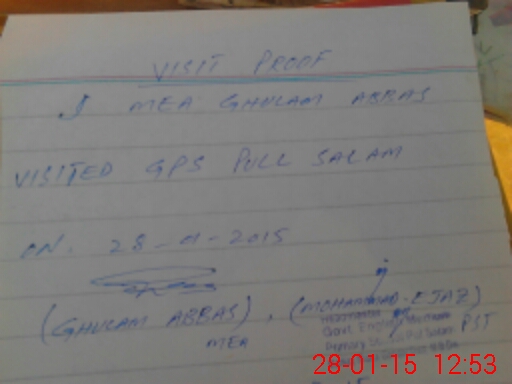 VISIT PROOF
I MEA GHULAM ABBAS
VISITED GPS PULL SALAM
ON. 28-01-2015
(GHULAM ABBAS), (MOHAMMAD-EJAZ)
MEA PST
Headmaster
Govt. English Medium
Primary School Pul Salam
28-01-15 12:53